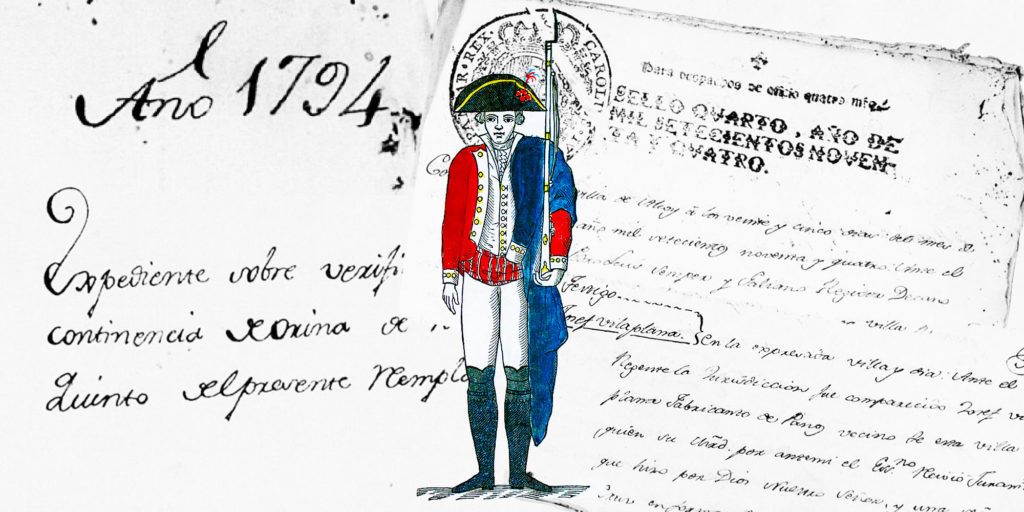 Año 1794
Expediente sobre verifi
continencia de orina de
Quinto del presente Rempla
PAR · REX · CAROL
Para despachos de oficio quatro mrs
SELLO QUARTO, AÑO DE
MIL SETECIENTOS NOVEN-
TA Y QUATRO.
villa de Alcoy á los veinte y cinco dias del mes de
año mil setecientos noventa y quatro: Ante el
Luis Semper y Regidor Decano
villa
Testigo
Josef vilaplana. En la expresada villa y dia: Ante el
Regente la Jurisdiccion fue comparecido Josef v
plana Fabricante de Panos vecino de esta villa
quien su mrd. por antemi el Esno recivió Juram
que hizo por Dios Nuestro Señor, y una